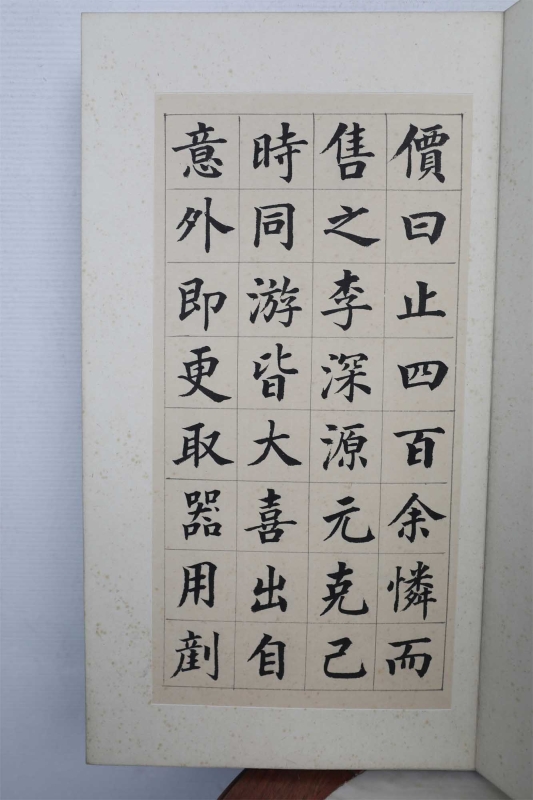 價曰止四百余憐而
售之李深源元克己
時同游皆大喜出自
意外即更取器用剷